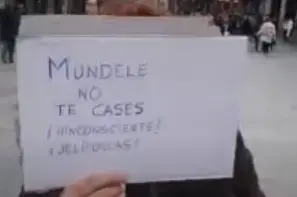 MUNDELE
NO
TE CASES
¡INCONSCIENTE!